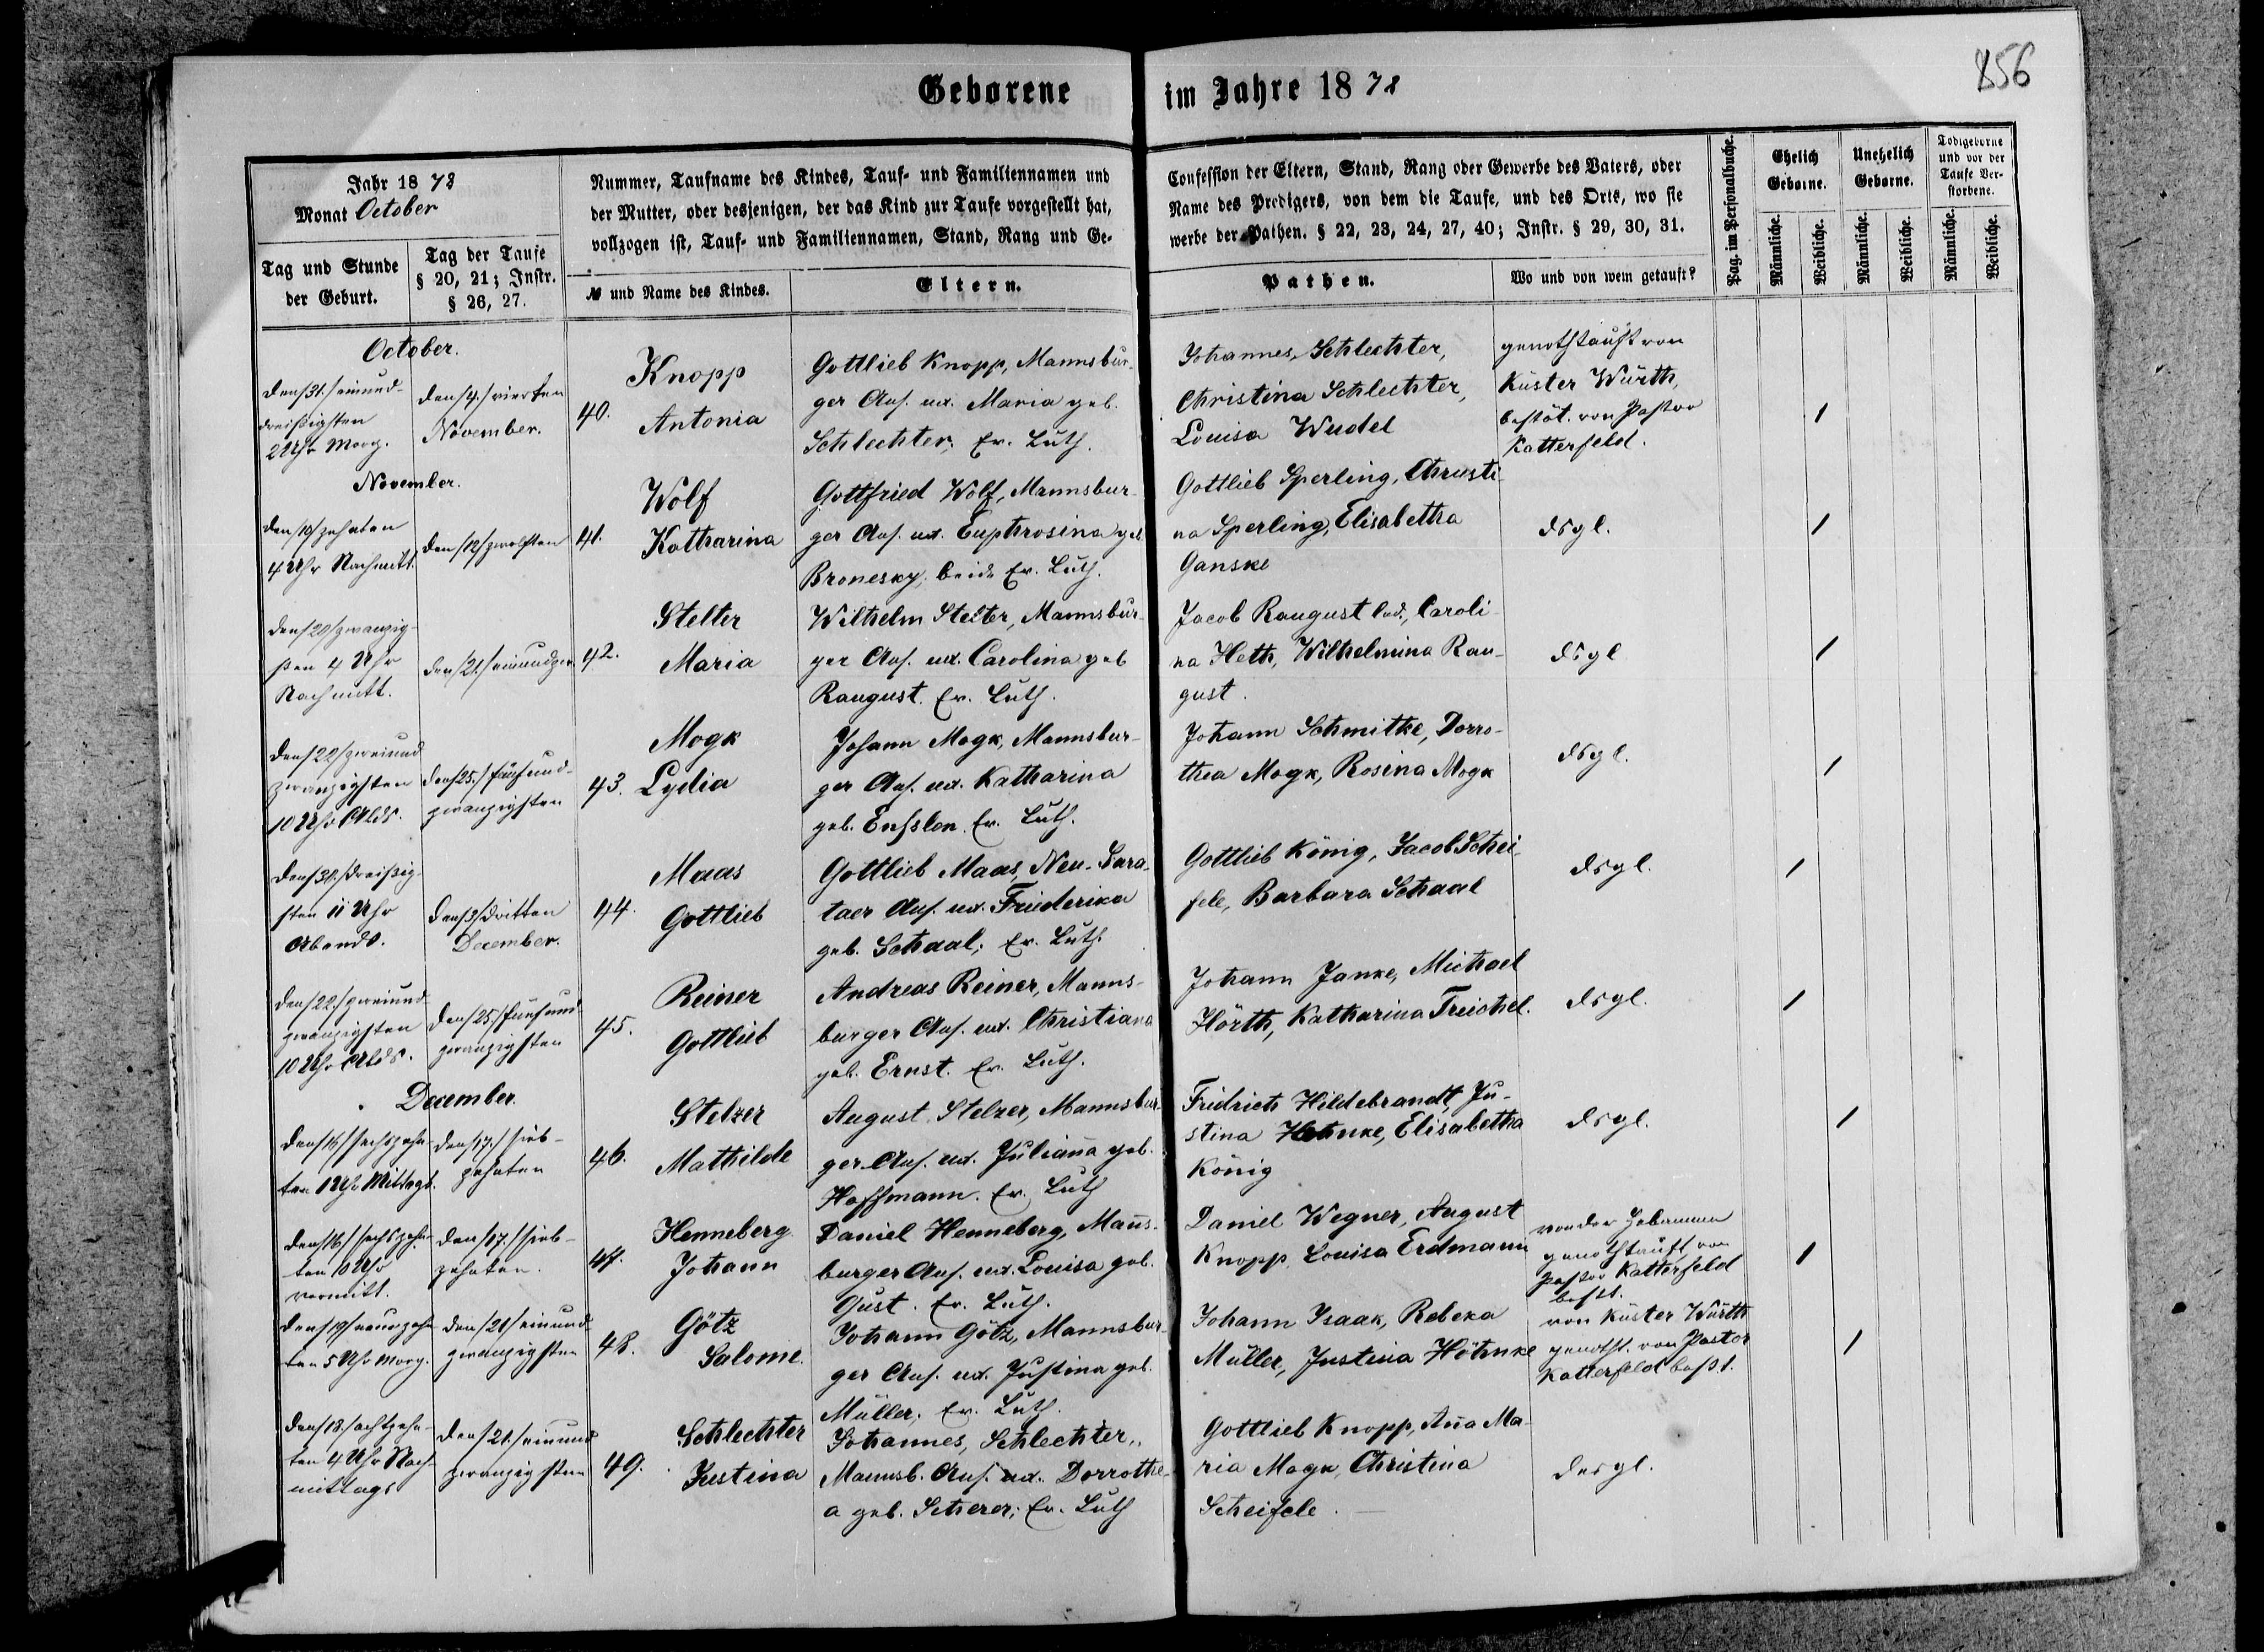 856
Geborene im Jahre 1878
Jahr 1878
Monat October
Tag und Stunde
der Geburt.
Tag der Taufe
§ 20, 21; Instr.
§ 26, 27.
Nummer, Taufname des Kindes, Tauf- und Familiennamen und
der Mutter, oder desjenigen, der das Kind zur Taufe vorgestellt hat,
vollzogen ist, Tauf- und Familiennamen, Stand, Rang und Ge-
№ und Name des Kindes.
Eltern.
Confession der Eltern, Stand, Rang oder Gewerbe des Vaters, oder
Name des Predigers, von dem die Taufe, und des Orts, wo sie
werbe der Pathen. § 22, 23, 24, 27, 40; Instr. § 29, 30, 31.
Pathen.
Wo und von wem getauft?
Pag. im Personalbuche.
Ehelich
Geborne.
Unehelich
Geborne.
Todtgeborne
und vor der
Taufe Ver-
storbene.
Männliche.
Weibliche.
Männliche.
Weibliche.
Männliche.
Weibliche.
October.
den /31./ einund-
dreißigsten
2 Uhr Morg.
den /4./ vierten
November.
40.
Knopp
Antonia
Gottlieb Knopp, Mannsbur-
ger Ans. ux. Maria geb.
Schlechter; Ev. Luth.
Johannes Schlechter,
Christina Schlechter,
Louisa Wudel
genothtauft von
Küster Würth,
bestät. von Pastor
Katterfeld.
/
November.
den /10/ zehnten
4 Uhr Nachmitt.
den /12/ zwolften
41.
Wolf
Katharina
Gottfried Wolf, Mannsbur-
ger Ans. ux. Euphrosina geb
Bronesky, beide Ev. Luth.
Gottlieb Sperling, Christi-
na Sperling, Elisabetha
Ganske
dsgl.
/
den /20/ zwanzig-
sten 4 Uhr
Nachmitt.
den /21./ einundzw.
42.
Stelter
Maria
Wilhelm Stelter, Mannsbur-
ger Ans. ux. Carolina geb
Raugust. Ev. Luth.
Jacob Raugust led., Caroli-
na Heth, Wilhelmina Rau-
gust.
dsgl
/
den /22/ zweiund
zwanzigsten
10 Uhr Abds.
den /25./ fünfund-
zwanzigsten
43.
Mogk
Lydia
Johann Mogk, Mannsbur-
ger Ans. ux. Katharina
geb. Ensslen. Ev. Luth.
Johann Schmitke, Dorro-
thea Mogk, Rosina Mogk
dsgl.
/
den /30./ dreißig-
sten 11 Uhr
Abends.
den /3/ dritten
December.
44.
Maas
Gottlieb
Gottlieb Maas, Neu-Sara-
taer Ans. ux. Friederika
geb. Schaal; Ev. Luth.
Gottlieb König, Jacob Schei-
fele, Barbara Schaal
dsgl.
/
den /22./ zweiund
zwanzigsten
10 Uhr Abds.
den /25/ fünfund
zwanzigsten
45.
Reiner
Gottlieb
Andreas Reiner, Manns-
burger Ans. ux. Christiana
geb. Ernst. Ev. Luth.
Johann Janke, Michael
Hörth, Katharina Treichel.
dsgl.
/
December.
den /16/ sechszehn-
ten 1 Uhr Mittags.
den /17./ sieb-
zehnten
46.
Stelzer
Mathilde
August Stelzer, Mannsbur-
ger Ans. ux. Juliana geb.
Hoffmann. Ev. Luth
Fridrich Hildebrandt, Ju-
stina Hehnke, Elisabetha
König
dsgl.
/
den /16/ sechszehn-
ten 10 Uhr
vormitt.
den /17./ sieb-
zehnten.
47.
Henneberg
Johann
Daniel Henneberg, Mans-
burger Ans. ux. Louisa geb.
Gust. Ev. Luth.
Daniel Wegner, August
Knopp, Louisa Erdmann
von der Hebamme
genothtauft, von
Pastor Katterfeld
best.
/
den /19/ neunzehn-
ten 5 Uhr Morg.
den /21/ einund
zwanzigsten
48.
Götz
Salome.
Johann Götz, Mannsbur-
ger Ans. ux. Justina geb.
Müller; Ev. Luth.
Johann Isaak, Rebeka
Müller, Justina Höhnke
von Küster Würth
genotht. von Pastor
Katterfeld best.
/
den /18./ achtzehn-
ten 4 Uhr Nach-
mittags
den /21./ einund
zwanzigsten
49.
Schlechter
Justina
Johannes, Schlechter,
Mannsb. Ans. ux. Dorrothe-
a geb. Scherer; Ev. Luth
Gottlieb Knopp, Ana Ma-
ria Mogk, Christina
Scheifele.
desgl.